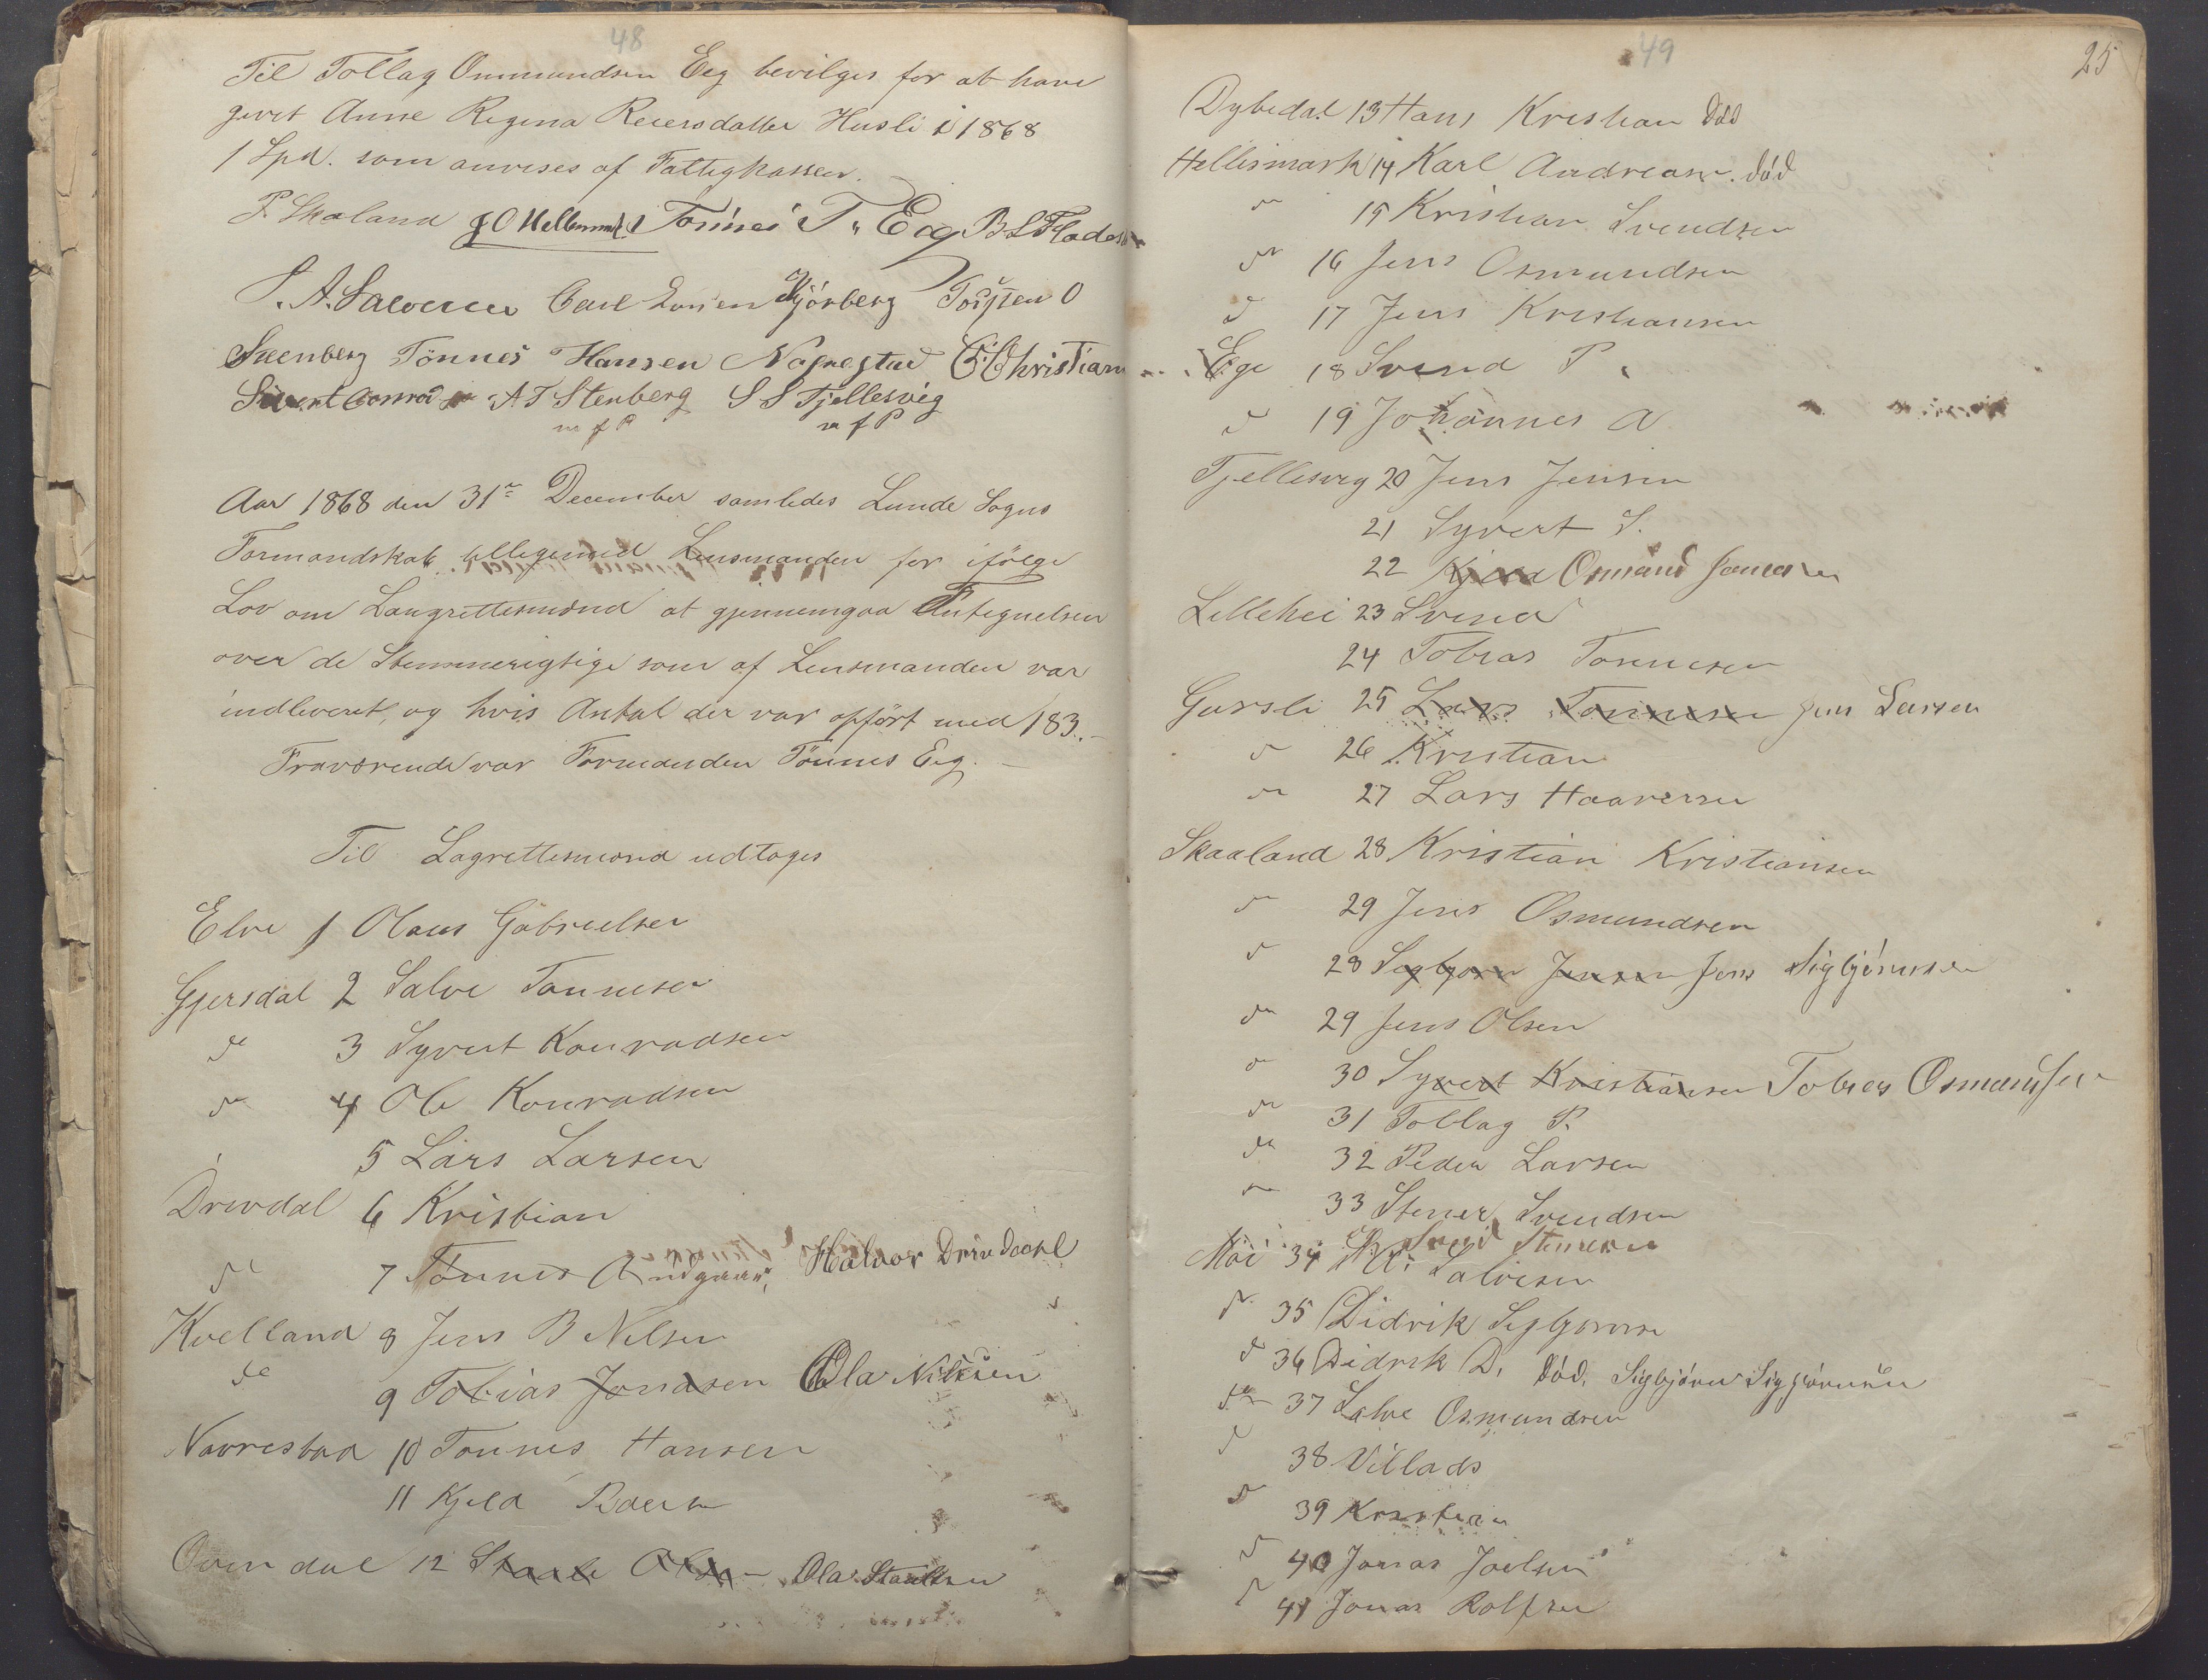 48
Til Tollag Ommundsen Eeg bevilges for at have
givet Anne Regina Reiersdatter Husli i 1868
1 Spd. som anvises af Fattigkassen.
P. Skaland J O Hellesmark Tönnes T. Eeg B S Flades
S. A. Salvesen Carl Larsen Kjörberg Torsten O
Steenberg Tönnes Hansen Nafrestad C Christian
Sivert Conrodsen A T Stenberg S S Tjellesvig
m f P m f P
Aar 1868 den 31te December samledes Lunde Sogns
Formandskab tilligemed Lensmanden for ifölge
Lov om Laugrettesmænd at gjennemgaa Antegnelsen
over de Stemmerigtige som af Lensmanden var
indleveret, og hvis Antal der var opfört med 183.-
Fraværende var Formanden Tönnes Eeg. -
Til Lagrettesmænd udtoges
Elve 1 Olaus Gabrielsen
Gjersdal 2 Salve Tonnesen
do 3 Syvert Konradsen
do 4 Ole Konradsen
5 Lars Larsen
Drivdal 6 Kristian
do 7 Tönnes Andgaars, Halvor Drivdahl
Kvelland 8 Jens B Nilsen
do 9 Tobias Jonasen Ola Nilsen
Navrestad 10 Tonnes Hansen
11 Kjeld Pedersen
Ovendal 12 Staale Olsen - Ola Staalesen
49
25
Dybedal 13 Hans Kristian död
Hellismark 14 Karl Andreasen. död
do 15 Kristian Svendsen
do 16 Jens Osmundsen
do 17 Jens Kristiansen
Ege 18 Svend P.
do 19 Johannes A
Tjellesvig 20 Jens Jensen
21 Syvert S.
22 Kjeld Osmund Jonasen
Lillehei 23 Svend
24 Tobias Tonnesen
Gursli 25 Lars Tonnesen Jens Larsen
do 26 Kristian
do 27 Lars Haaversen
Skaaland 28 Kristian Kristiansen
do 29 Jens Osmundsen
do 28 Segbjorn Jensen Jens Sigbjörnsen
do 29 Jens Olsen
do 30 Syvert Kristiansen Tobias Osmundsen
do 31 Tollag P.
do 32 Peder Larsen
do 33 Stener Svendsen
Svend Stenersen
Moi 34 Salvesen
do 35 Didrik Segbjornsen
do 36 Didrik D. död. Sigbjörn Sigbjörnsen
do 37 Salve Osmundsen
do 38 Villads
do 39 Kristian
do 40 Jonas Joelsen
do 41 Jonas Rolfsen